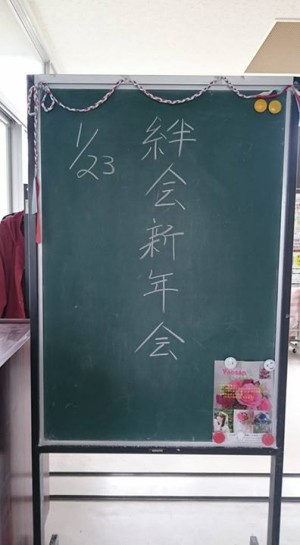 1/23
絆会新年会